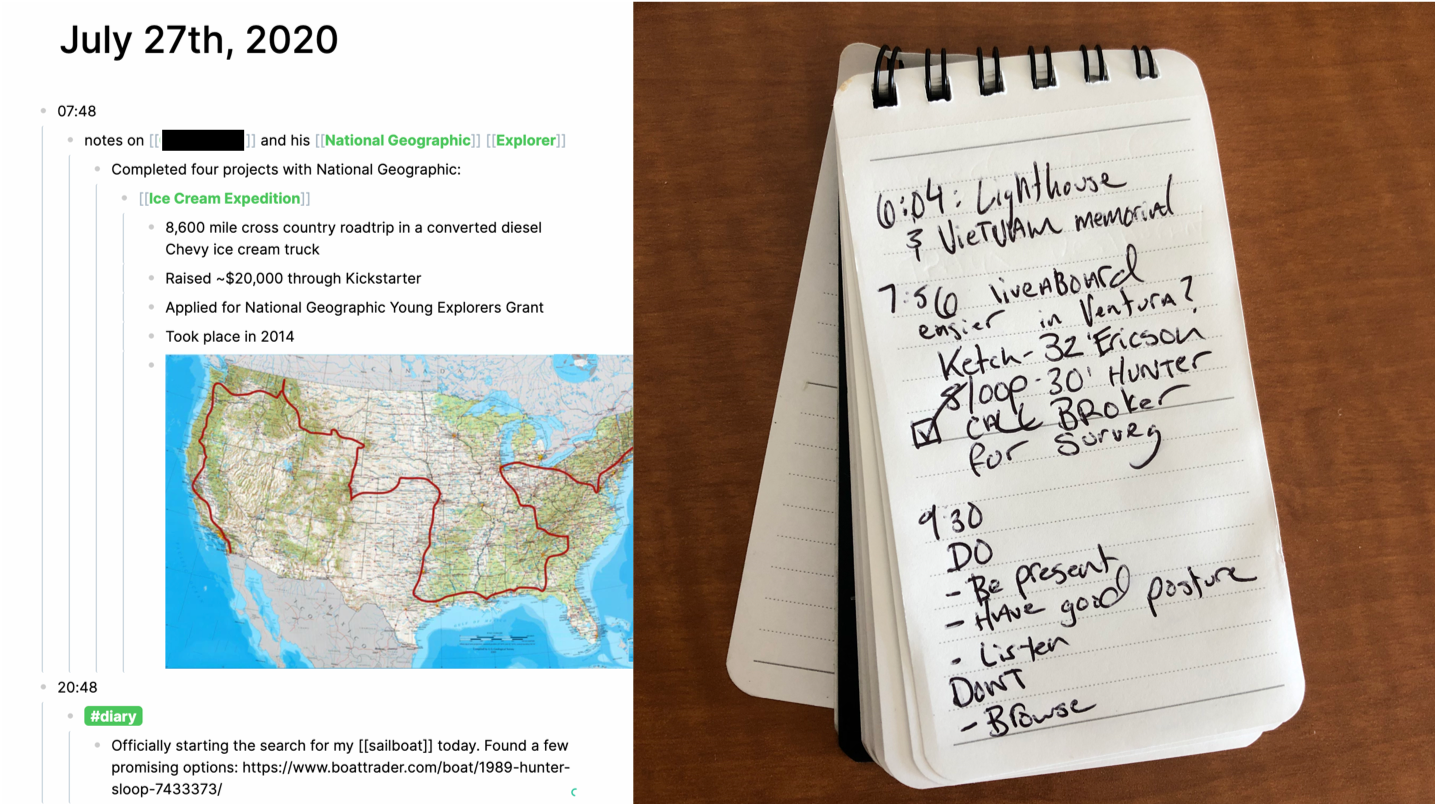 July 27th, 2020
07:48
notes on [[ ]] and his [[National Geographic]] [[Explorer]]
Completed four projects with National Geographic:
[[Ice Cream Expedition]]
8,600 mile cross country roadtrip in a converted diesel
Chevy ice cream truck
Raised ~$20,000 through Kickstarter
Applied for National Geographic Young Explorers Grant
Took place in 2014
CANADA
20:48
#diary
Officially starting the search for my [[sailboat]] today. Found a few
promising options: https://www.boattrader.com/boat/1989-hunter-
sloop-7433373/
6:04: Lighthouse
& VIETNAM memorial
7:56 liveABoard
easier in Ventura?
Ketch - 32' Ericson
Sloop - 30' HUNTER
CALL BROKer
for Survey
9 30
DO
- Be present
- HAve good posture
- Listen
DONT
- BROWSE